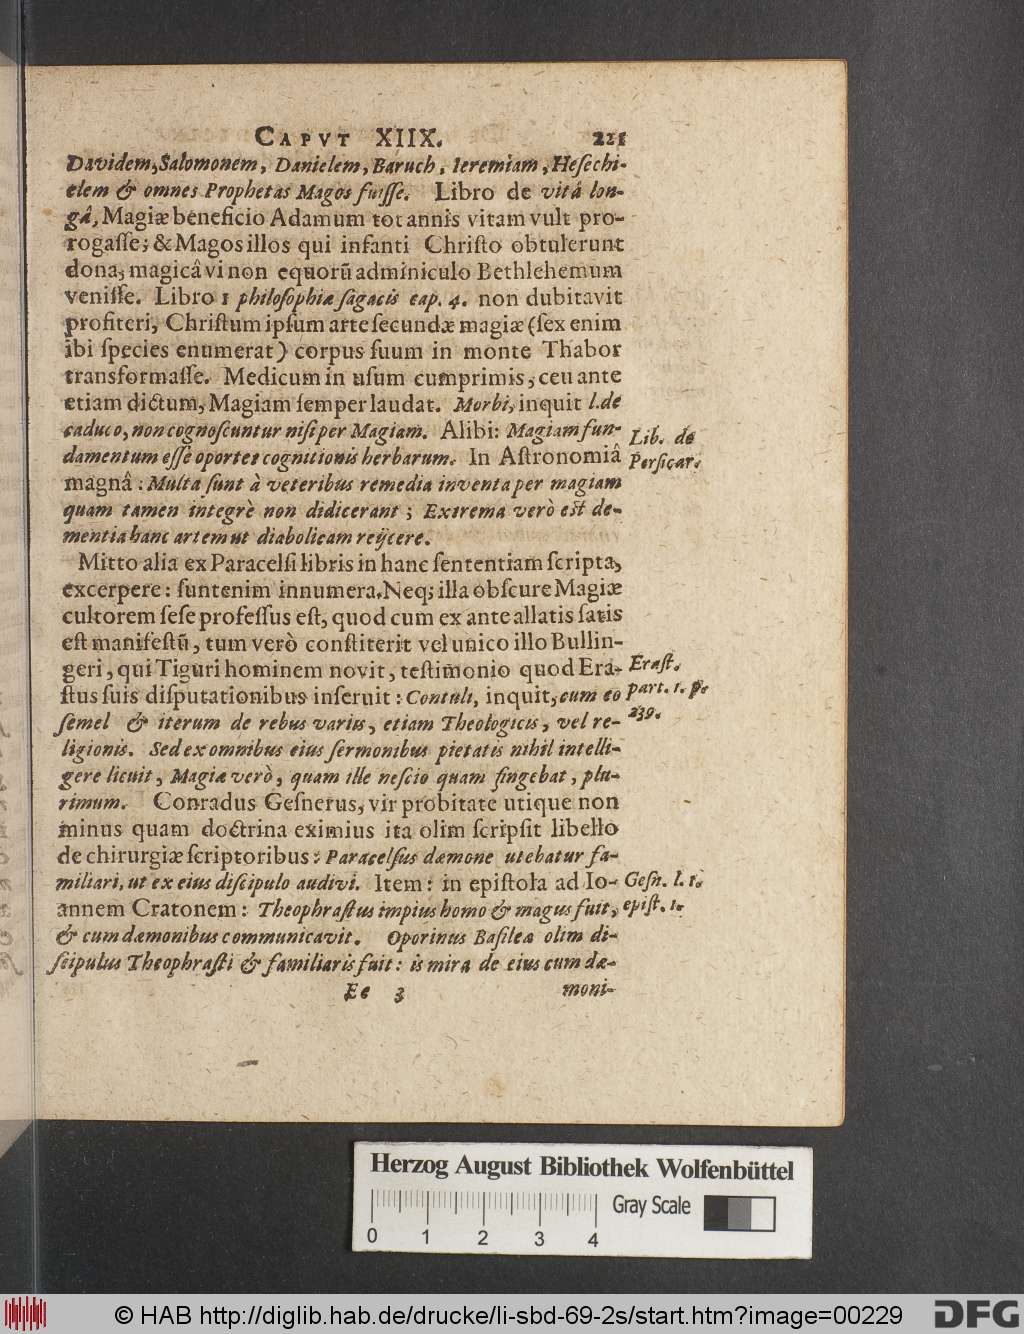 CAPVT XIIX. 221
Davidem, Salomonem, Danielem, Baruch, Ieremiam, Hesechi-
elem & omnes Prophetas Magos fuisse. Libro de vitâ lon-
gâ, Magiæ beneficio Adamum tot annis vitam vult pro-
rogasse; & Magos illos qui infanti Christo obtulerunt
dona, magicâ vi non equorũ adminiculo Bethlehemum
venisse. Libro 1 philosophiæ sagacis cap. 4. non dubitavit
profiteri, Christum ipsum arte secundæ magiæ (sex enim
ibi species enumerat) corpus suum in monte Thabor
transformasse. Medicum in usum cumprimis, ceu ante
etiam dictum, Magiam semper laudat. Morbi, inquit l. de
caduco, non cognoscuntur nisi per Magiam. Alibi: Magiam fun-
damentum esse oportet cognitionis herbarum. In Astronomiâ
magnâ: Multa sunt à veteribus remedia inventa per magiam
quam tamen integrè non didicerant; Extrema verò est de-
mentia hanc artem ut diabolicam reijcere.
Lib. de
Persicar.
Mitto alia ex Paracelsi libris in hanc sententiam scripta,
excerpere: sunt enim innumera. Neq; illa obscure Magiæ
cultorem sese professus est, quod cum ex ante allatis satis
est manifestũ, tum verò constiterit vel unico illo Bullin-
geri, qui Tiguri hominem novit, testimonio quod Era-
stus suis disputationibus inseruit: Contuli, inquit, cum eo
semel & iterum de rebus variis, etiam Theologicis, vel re-
ligionis. Sed ex omnibus eius sermonibus pietatis nihil intelli-
gere licuit, Magiæ verò, quam ille nescio quam fingebat, plu-
rimum. Conradus Gesnerus, vir probitate utique non
minus quam doctrina eximius ita olim scripsit libello
de chirurgiæ scriptoribus: Paracelsus dæmone utebatur fa-
miliari, ut ex eius discipulo audivi. Item: in epistola ad Io-
annem Cratonem: Theophrastus impius homo & magus fuit,
& cum dæmonibus communicavit. Oporinus Basileæ olim di-
scipulus Theophrasti & familiaris fuit: is mira de eius cum dæ-
Erast.
part. 1. p.
239.
Gesn. l. 1.
epist. 1.
Ee 3 moni-
Herzog August Bibliothek Wolfenbüttel
Gray Scale
0 1 2 3 4
© HAB http://diglib.hab.de/drucke/li-sbd-69-2s/start.htm?image=00229
DFG